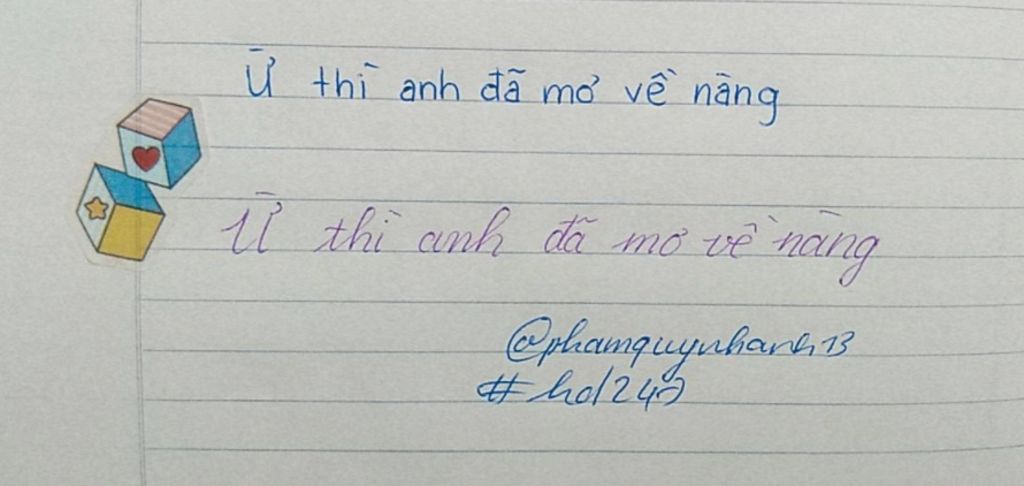 Ừ thì anh đã mơ về nàng
Ừ thì anh đã mơ về nàng
@phamquynhanh13
#hd247